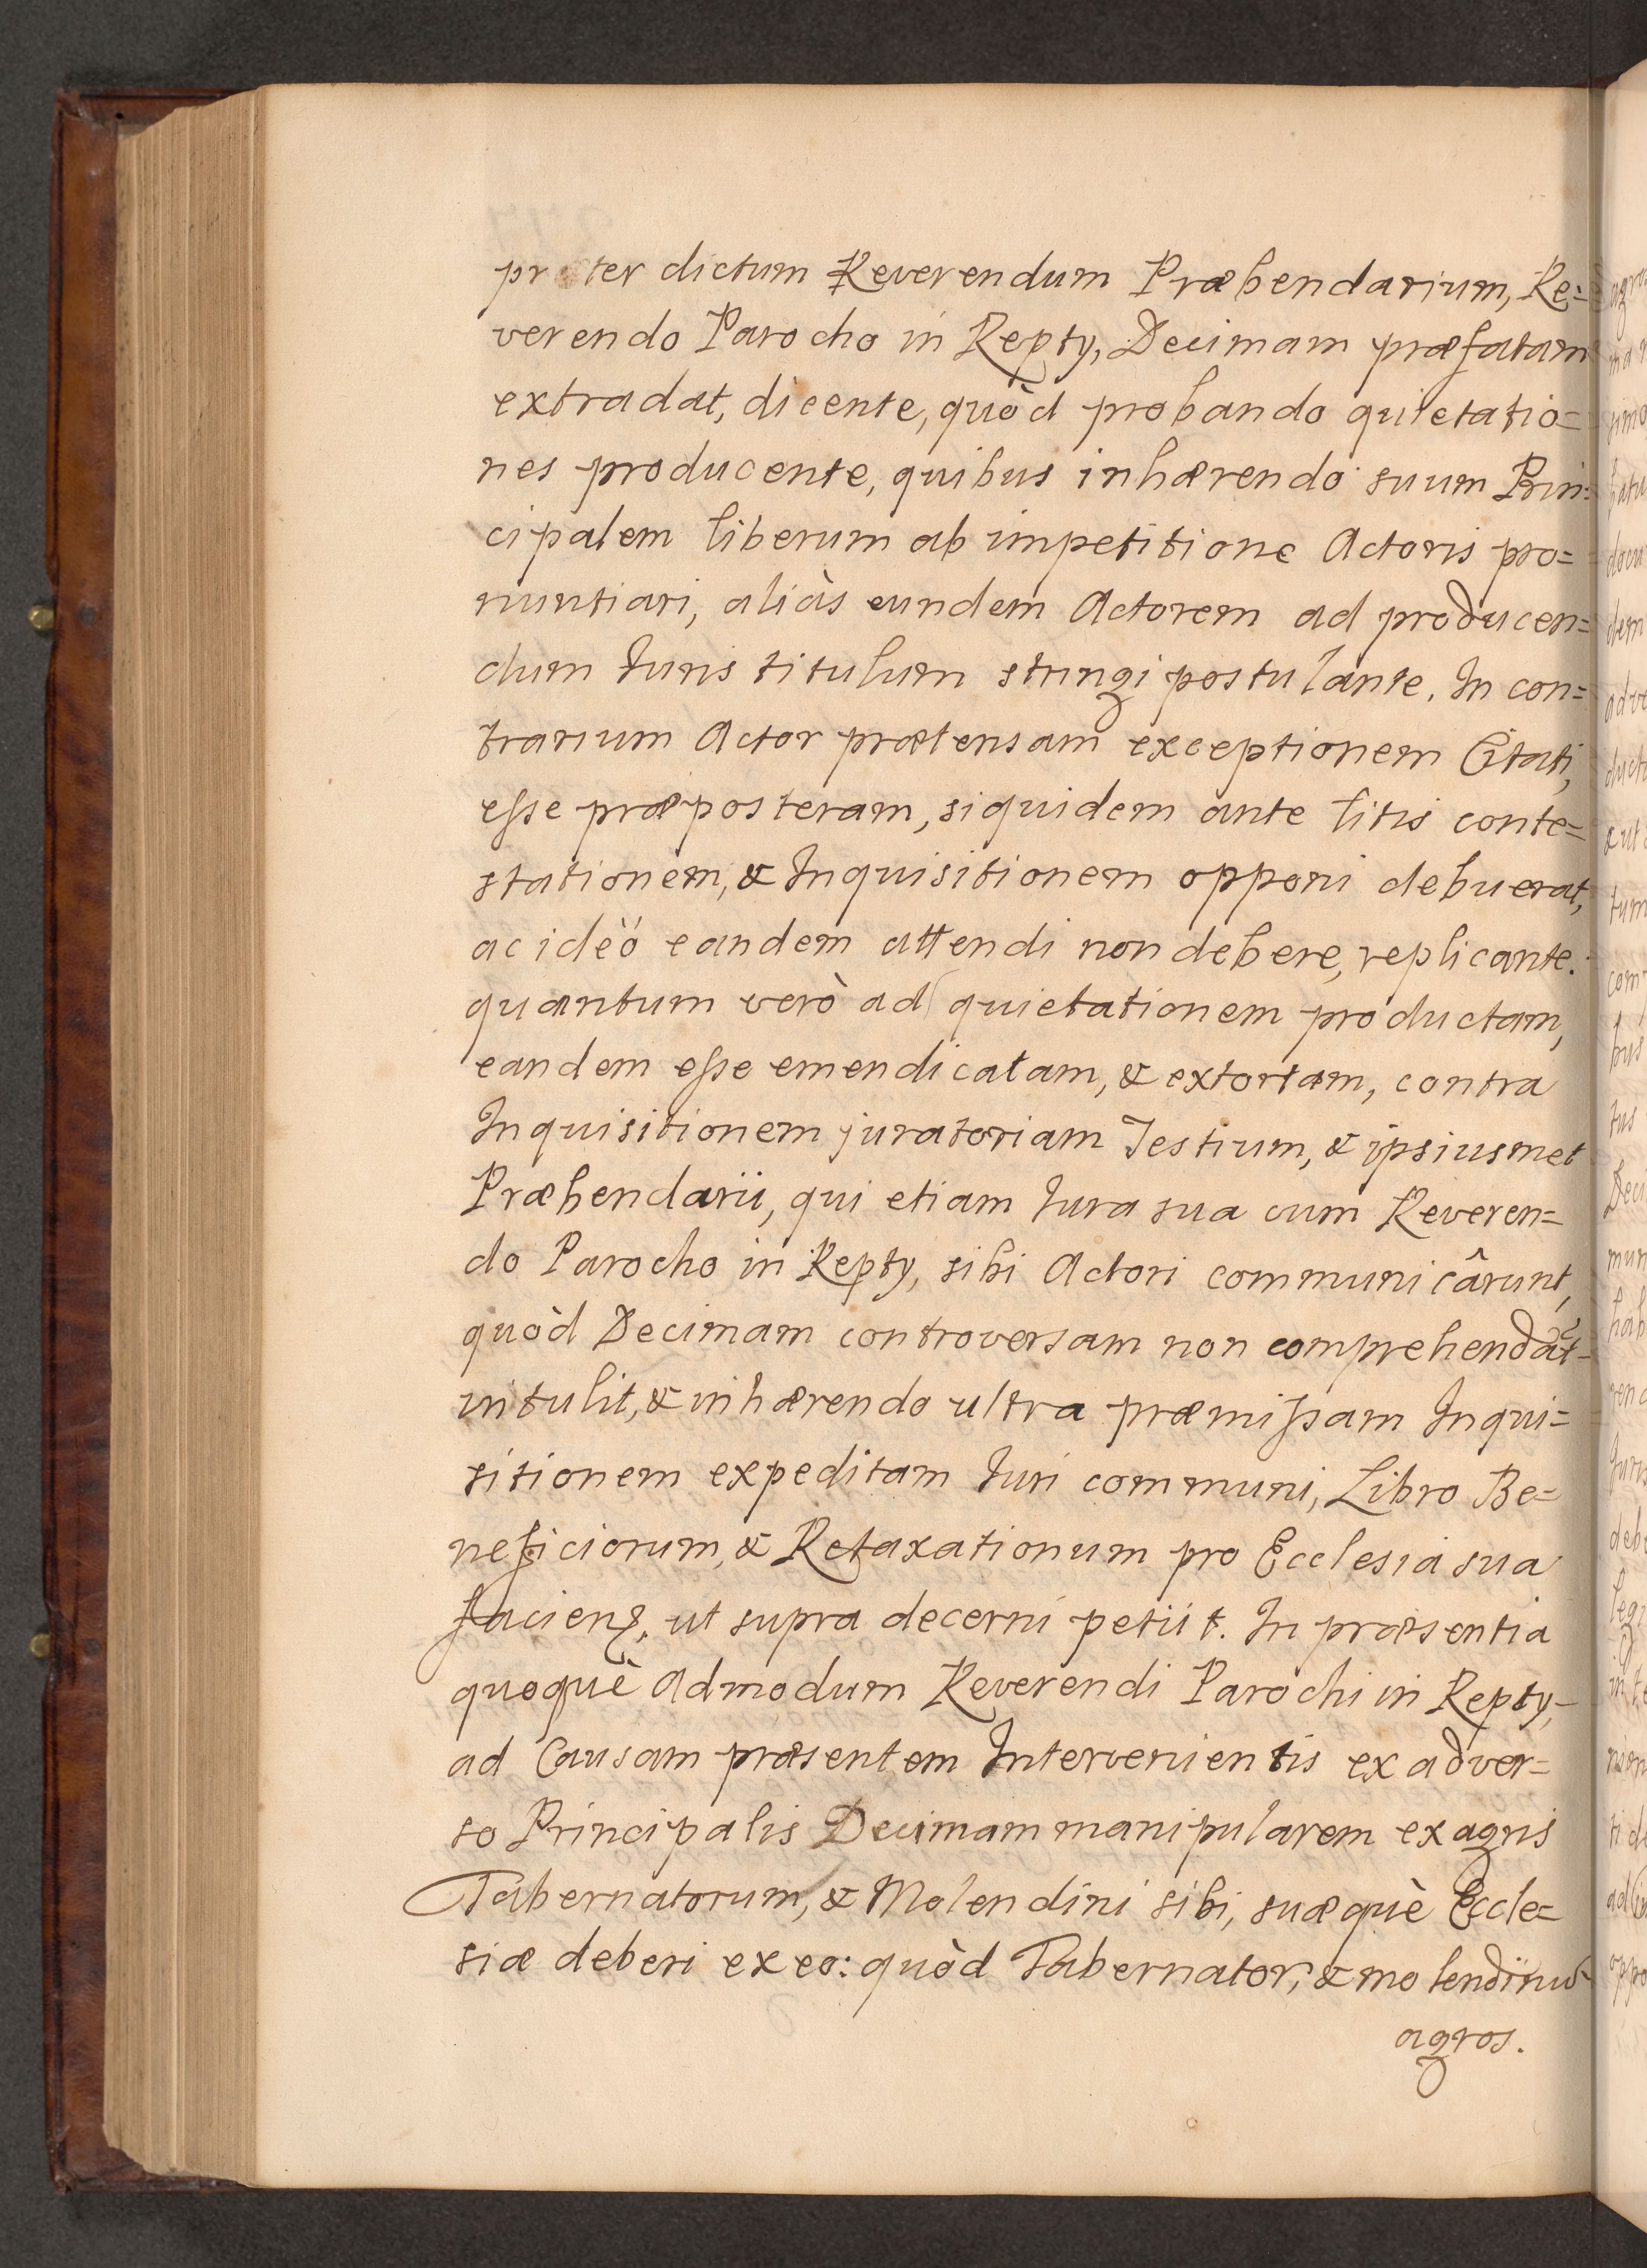 præter dictum Reverendum Præbendarium, Re=
verendo Parocho in Repty, Decimam præfatam
extradat, dicente, quòd probando quietatio=
nes producente, quibus inhærendo suum Prin=
cipalem liberum ab impetitione Actoris pro=
nuntiari, aliàs eundem Actorem ad producen=
dum Juris titulum stringi postulante. In con=
trarium Actor prætensam exceptionem Citati,
esse præposteram, siquidem ante litis conte=
stationem, & Inquisitionem opponi debuerat,
ac ideò eandem attendi non debere, replicante.
quantum verò ad quietationem productam,
eandem esse emendicatam, & extortam, contra
Inquisitionem juratoriam Testium, & ipsiusmet
Præbendarii, qui etiam Jura sua cum Reveren=
do Parocho in Repty, sibi Actori communicârunt,
quòd Decimam controversam non comprehendãt
intulit, & inhærendo ultra præmissam Inqui=
sitionem expeditam Juri communi, Libro Be=
neficiorum, & Retaxationum pro Ecclesia sua
faciens, ut supra decerni petiit. In præsentia
quoquè Admodum Reverendi Parochi in Repty,
ad Causam præsentem Intervenientis ex adver=
so Principalis Decimam manipularem ex agris
Tabernatorum, & Molendini sibi, suæquè Eccle=
siæ deberi ex eo: quòd Tabernator, & molendinũ
agros.